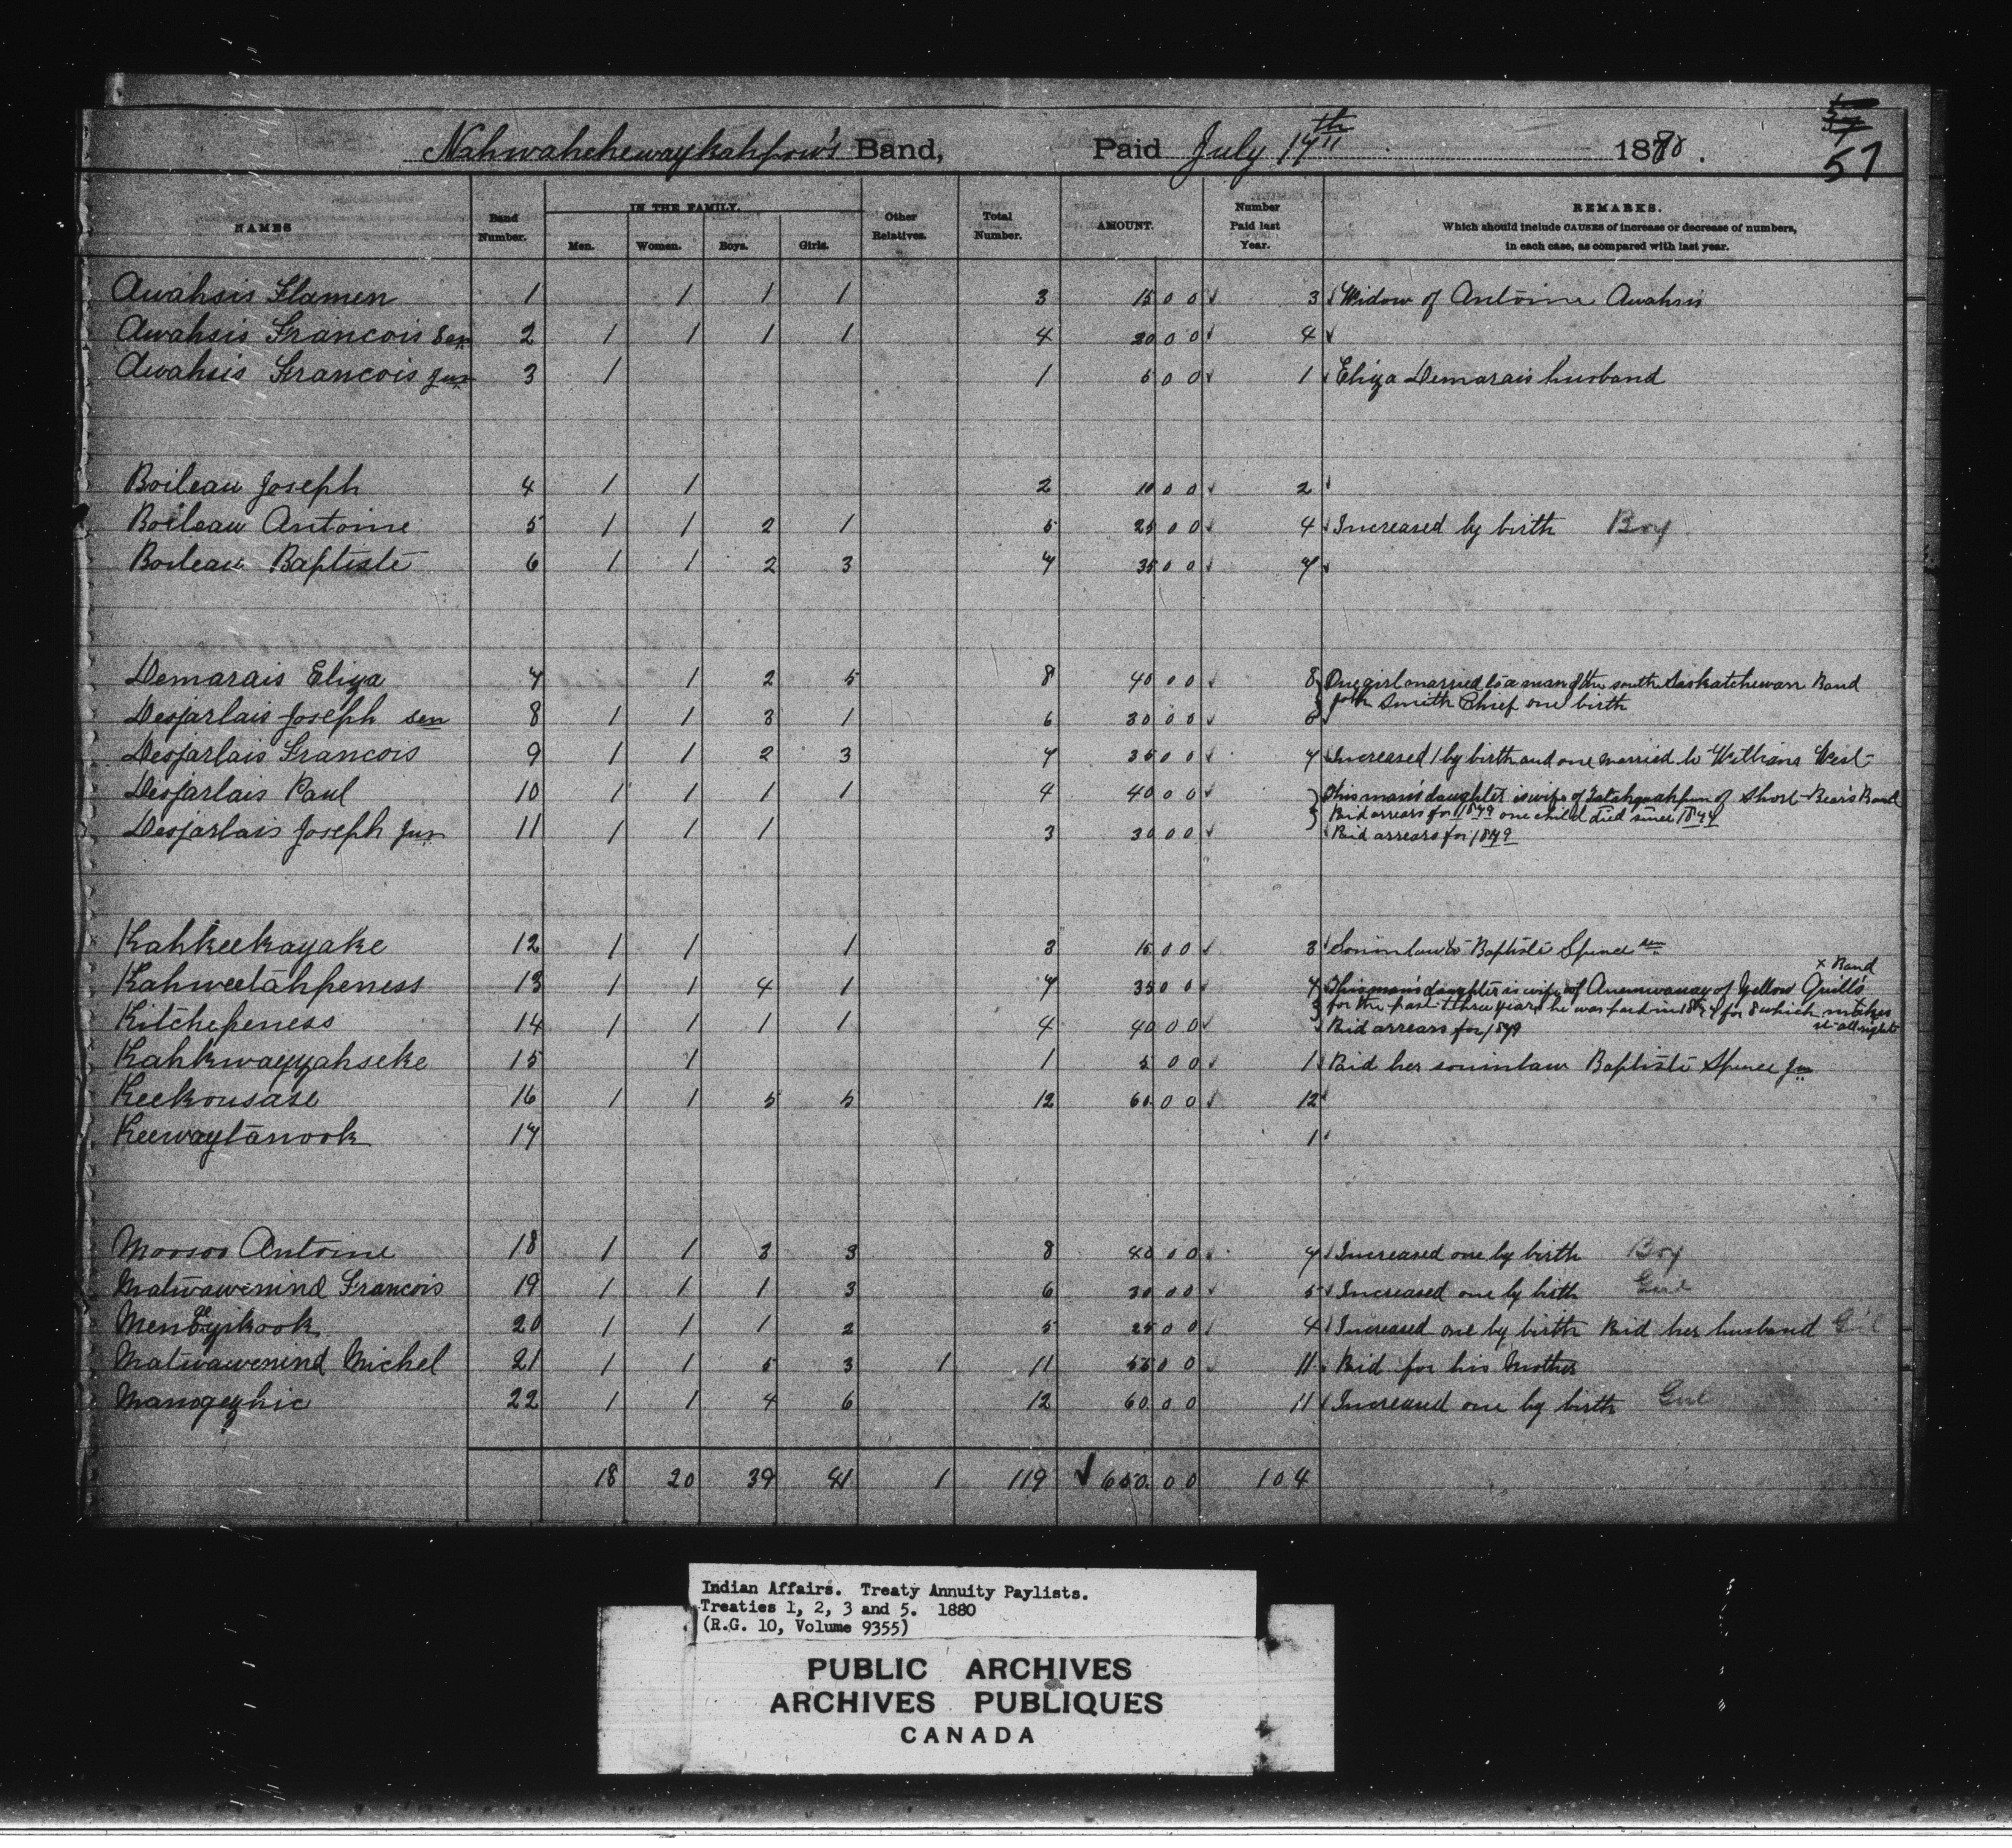 Nahwahchewaykahpow's Band, Paid July 17th 1880.
57
NAMES Band Number. IN THE FAMILY. Men. Women. Boys. Girls. Other Relatives. Total Number. AMOUNT. Number Paid last Year. REMARKS. Which should include CAUSES of increase or decrease of numbers, in each case, as compared with last year.
Awahsis Flamen 1 1 1 1 3 15 00 3 Widow of Antoine Awahsis
Awahsis Francois Sen 2 1 1 1 1 4 20 00 4
Awahsis Francois Jun 3 1 1 5 00 1 Eliza Demarais husband
Boileau Joseph 4 1 1 2 10 00 2
Boileau Antoine 5 1 1 2 1 5 25 00 4 Increased by birth Boy
Boileau Baptiste 6 1 1 2 3 7 35 00 7
Demarais Eliza 7 1 2 5 8 40 00 8 One girl married to a man of the south Saskatchewan Band
John Smith Chief one birth
Desjarlais Joseph sen 8 1 1 3 1 6 30 00 6
Desjarlais Francois 9 1 1 2 3 7 35 00 7 Increased 1 by birth and one married to William West
Desjarlais Paul 10 1 1 1 1 4 40 00 This man's daughter is wife of of Short Bears Band
Paid arrears for 1879 one child died since 1877
Desjarlais Joseph Jun 11 1 1 1 3 30 00 Paid arrears for 1879
Kahkeekayake 12 1 1 1 3 15 00 3 Soninlaw to Baptiste Spence sen
Kahweetahpeness 13 1 1 4 1 7 35 00 7 This man's daughter is wife of of Yellow Quill's x Band
for the past three years he was paid in 1877 for 8 which makes
it all right
Kitchepeness 14 1 1 1 1 4 40 00 Paid arrears for 1879
Kahkwayyahseke 15 1 1 5 00 1 Paid her soninlaw Baptiste Spence Jun
Keekousase 16 1 1 5 5 12 60 00 12
Keewaytanook 17 1
Moosoo Antoine 18 1 1 3 3 8 40 00 7 Increased one by birth Boy
Matwawenind Francois 19 1 1 1 3 6 30 00 5 Increased one by birth Girl
20 1 1 1 2 5 25 00 4 Increased one by birth Paid her husband Girl
Matwawenind Michel 21 1 1 5 3 1 11 55 00 11 Paid for his Mother
Manogezhic 22 1 1 4 6 12 60 00 11 Increased one by birth Girl
18 20 39 41 1 119 650.00 104
Indian Affairs. Treaty Annuity Paylists.
Treaties 1, 2, 3 and 5. 1880
(R.G. 10, Volume 9355)
PUBLIC ARCHIVES
ARCHIVES PUBLIQUES
CANADA